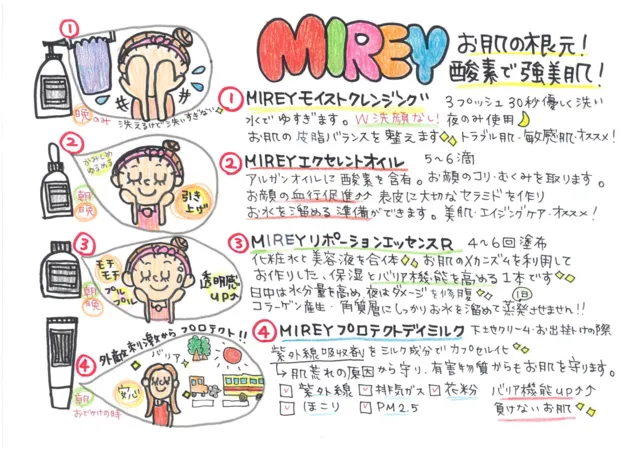 MIREY
お肌の根元!
酸素で強美肌!
①
晩のみ
洗えるけど洗いすぎない
① MIREYモイストクレンジング 3プッシュ30秒優しく洗い
水でゆすぎます。W洗顔なし! 夜のみ使用
お肌の皮脂バランスを整えます トラブル肌・敏感肌・オススメ!
②
かみしめゆるめる
朝
晩
引き上げ
② MIREYエクセレントオイル 5~6滴
アルガンオイルに酸素を含有。お顔のコリ・むくみを取ります。
お顔の血行促進↑↑ 表皮に大切なセラミドを作り
お水を溜める準備ができます。美肌・エイジングケア・オススメ!
③
モチモチ
プルプル
朝
晩
透明感UP↑
③ MIREYリポーションエッセンスR 4~6回塗布
化粧水と美容液を合体 お肌のメカニズムを利用して
お作りした、保湿とバリア機能を高める1本です
日中は水分量を高め、夜はダメージを修復
コラーゲン産生・角質層にしっかりお水を溜めて蒸発させません!!
④
外敵刺激からプロテクト!!
バリア
安心
朝
おでかけの時
④ MIREYプロテクトデイミルク 下土セクリーム・お出掛けの際
紫外線吸収剤をミルク成分でカプセル化
→肌荒れの原因から守り、有害物質からもお肌を守ります。
紫外線 排気ガス 花粉 バリア機能UP↑↑
ほこり PM2.5 負けないお肌